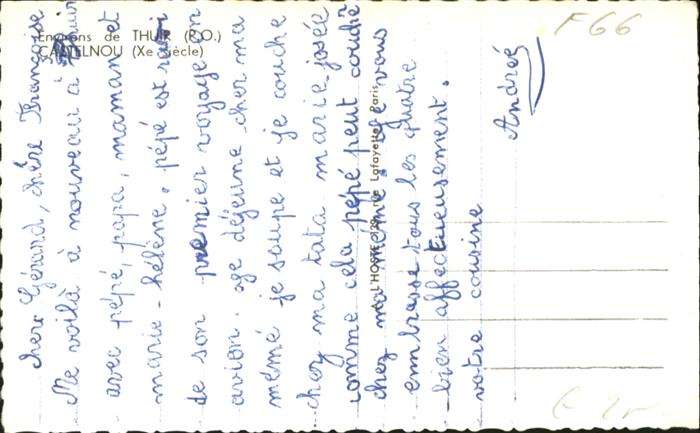 Environs de THUIR (P.O.)
CASTELNOU (Xe siècle)
cher Gérard, chère Françoise
Me voilà à nouveau à
avec pépé, papa, maman et
marie-hélène. pépé est ravi
de son premier voyage en
avion. je déjeune cher ma
mémé je soupe et je couche
chez ma tata marie josée
comme cela pépé peut couché
chez ma mémé. je vous
embrasse tous les quatre
bien affectueusement.
votre cousine
Andreé
rue Lafayette Paris
F66